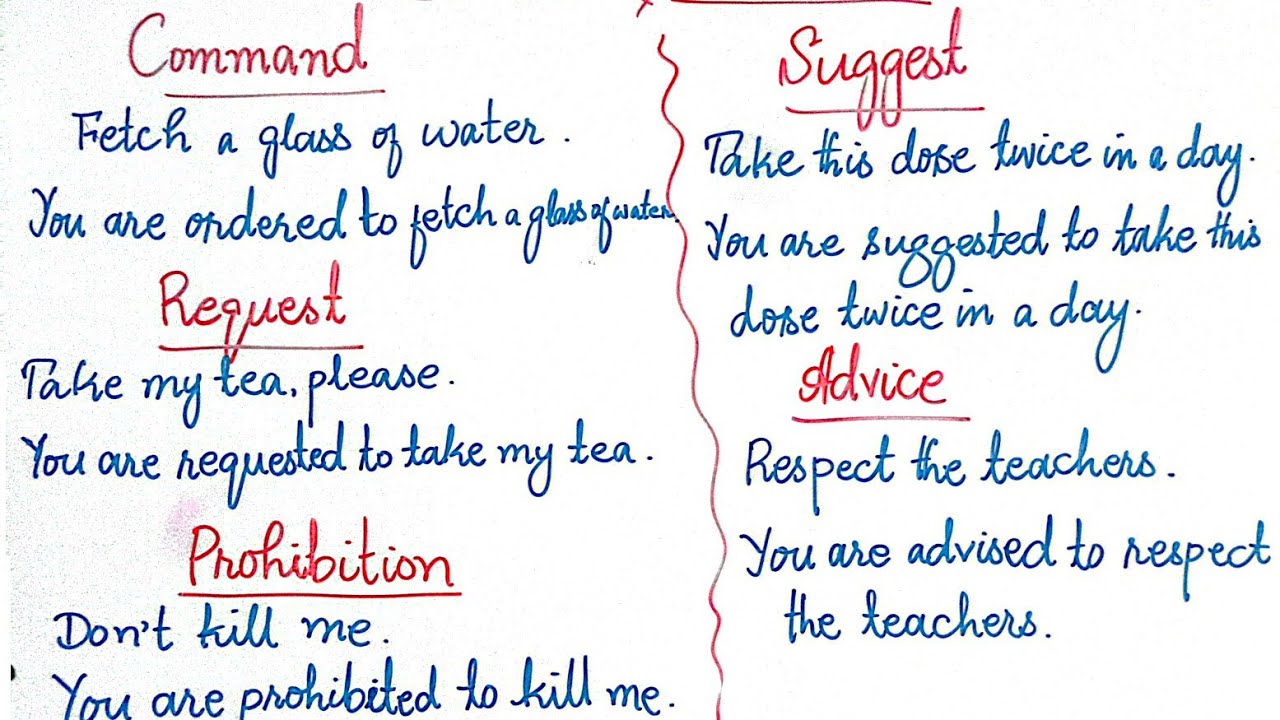 Command
Fetch a glass of water.
You are ordered to fetch a glass of water.
Request
Take my tea, please.
You are requested to take my tea.
Prohibition
Don't kill me.
You are prohibited to kill me.
Suggest
Take this dose twice in a day.
You are suggested to take this
dose twice in a day.
Advice
Respect the teachers.
You are advised to respect
the teachers.